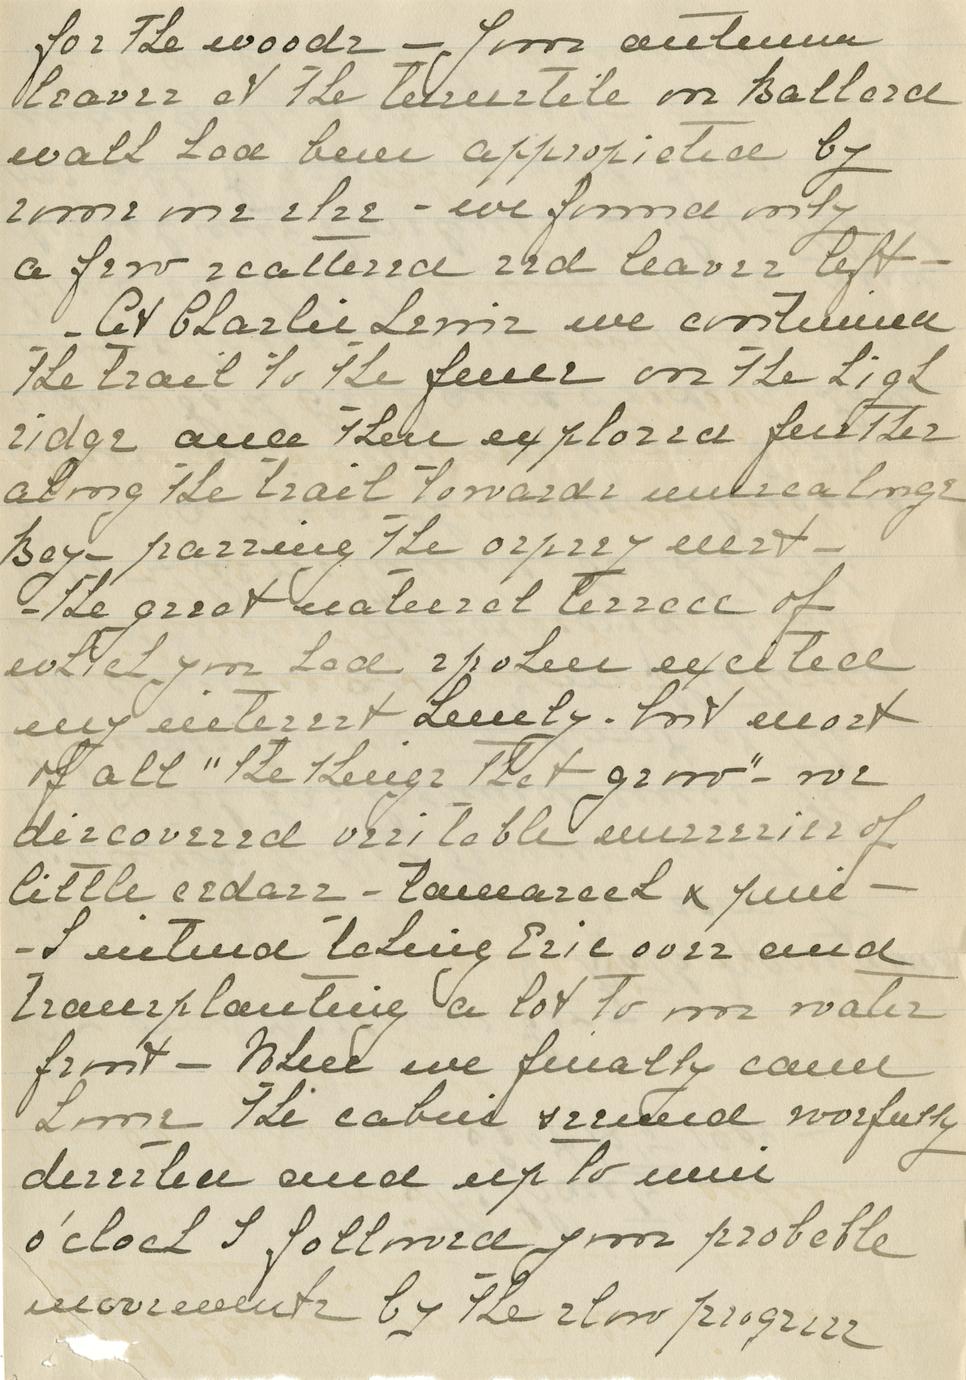 for the woods – Your autumn
leaves at the turnstile on Ballard
walk had been appropiated by
some one else – we found only
a few scattered red leaves left –
– At Charlie Lewis we continued
the trail to the fence on the high
ridge and then explored further
along the trail towards
Bay – passing the osprey nest –
– The great natural terrace of
which you had spoken excited
my interest keenly. but most
of all "the things that grow" – we
discovered veritable nurseries of
little cedars – tamarack & pine –
– I intend taking Eric over and
transplanting a lot to our water
front – When we finally came
home the cabin seemed woefully
deserted and up to nine
o'clock I followed your probable
movements by the slow progress